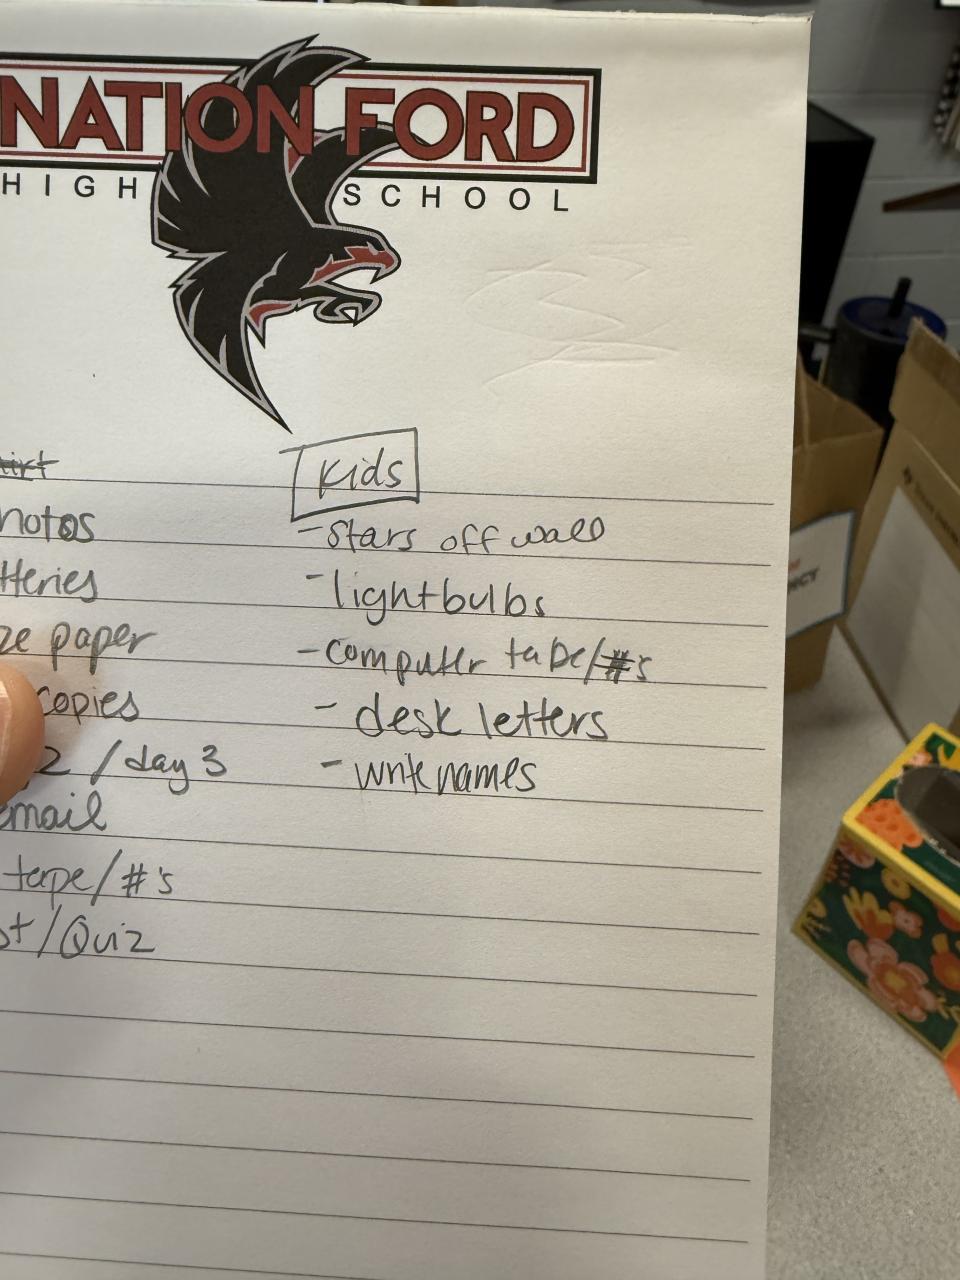 NATION FORD
HIGH SCHOOL
Kids
- stars off wall
- lightbulbs
- computer tape/#'s
- desk letters
- write names
hotos
tteries
ze paper
copies
2 / day 3
email
tape/#'s
st/Quiz